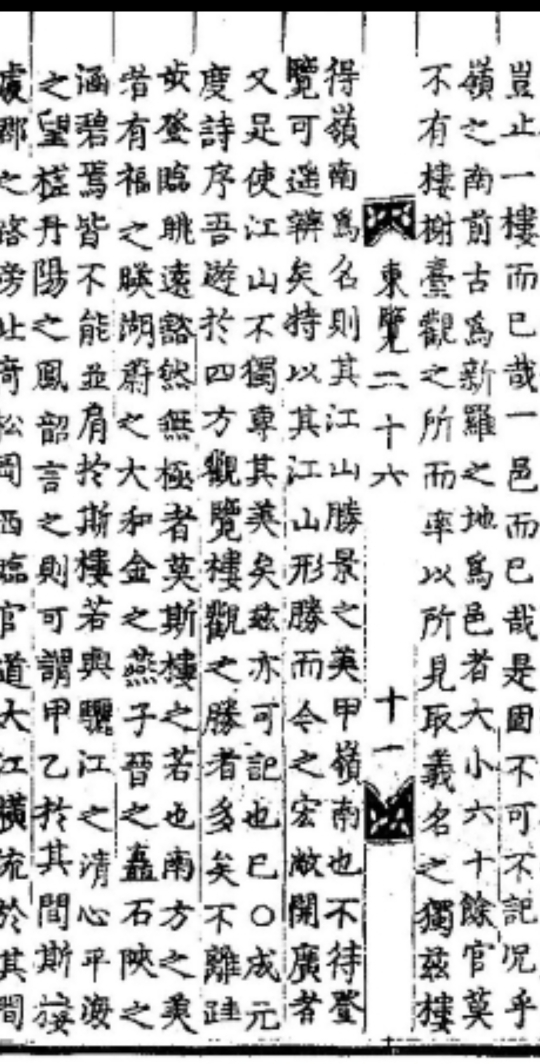 豈止一樓而已哉一邑而已哉是固不可不記况乎
嶺之南前古爲新羅之地爲邑者大小六十餘官莫
不有樓榭臺觀之所而率以所見取義名之獨玆樓
東覽二十六 十一
得嶺南爲名則其江山勝景之美甲嶺南也不待登
覽可遥辨矣特以其江山形勝而令之宏敞開廣者
又足使江山不獨專其美矣玆亦可記也已○成元
度詩序吾遊於四方觀覽樓觀之勝者多矣不離跬
步登臨眺遠豁然無極者莫斯樓之若也南方之美
者有福之暎湖蔚之大和金之燕子晉之矗石陜之
涵碧焉皆不能並肩於斯樓若與驪江之清心平海
之望槎丹陽之鳳韶言之則可謂甲乙於其間斯樓
處郡之路旁止奇松岡西臨官道大江橫流於其間